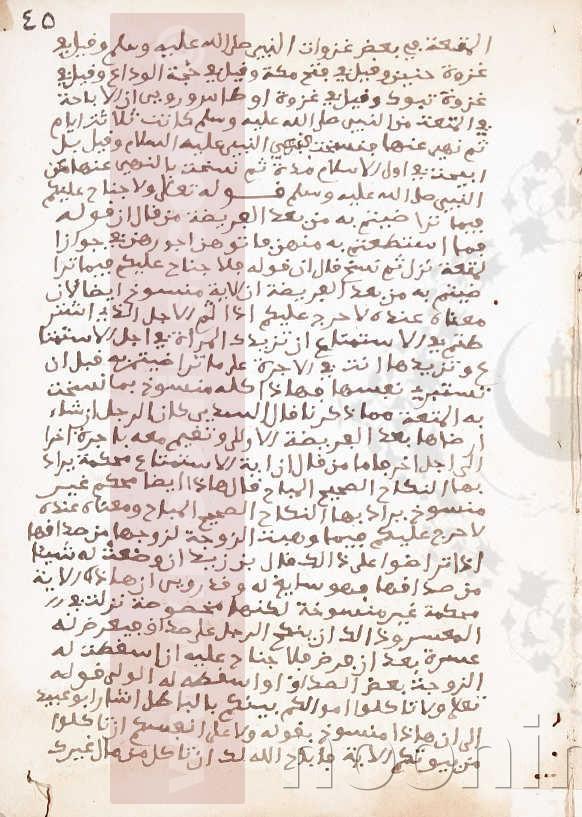 ٤٥
المتعة في بعض غزوات النبي صلى الله عليه وسلم وقيل في
غزوة حنين وقيل في فتح مكة وقيل في حجة الوداع وقيل في
غزوة تبوك وقيل في غزوة اوطاس وروي ان الاباحة
في المتعة من النبي صلى الله عليه وسلم كانت ثلاثة ايام
ثم نهى عنها فنسخت بنهي النبي عليه السلام وقيل بل
ابيحت في اول الاسلام مدة ثم نسخت بالنهي عنها من
النبي صلى الله عليه وسلم قوله تعالى ولا جناح عليكم
فيما تراضيتم به من بعد الفريضة من قال ان قوله
فما استمتعتم به منهن فاتوهن اجورهن في جواز ا
لمتعة نزل ثم نسخ قال ان قوله ولا جناح عليكم فيما ترا
ضيتم به من بعد الفريضة ان الاية منسوخ ايضا لان
معناه عنده لا حرج عليكم اذا تم الاجل الذي اشتر
طتم في الاستمتاع ان تزيدك المراة في اجل الاستمتا
ع وتزيدها انت في الاجرة على ما تراضيتم به قبل ان
تستبرئ نفسها فهاذا كله منسوخ بما نسخت
به المتعة مما ذكرنا قال السدي كان الرجل ان شاء
ارضاها بعد الفريضة الاولى وتقيم معه باجرة اخرا
الى اجل اخر فاما من قال ان اية الاستمتاع محكمة يراد
بها النكاح الصحيح المباح قال هاذا ايضا محكم غير
منسوخ يراد بها النكاح الصحيح المباح ومعناه عنده
لا حرج عليكم فيما وهبت الزوجة لزوجها من صداقها
اذا تراضوا على ذالك قال بن زيد ان وضعت له شيئا
من صداقها فهو سايغ له وقد روي ان هاذه الاية
محكمة غير منسوخة لكنها مخصوصة نزلت في
المعسر وذالك ان ينكح الرجل على صداق فيعرض له
عسرة بعد ان فرض فلا جناح عليه ان اسقطت له
الزوجة بعض الصداق او اسقطه له الولي قوله
تعلى ولا تاكلوا اموالكم بينكم بالباطل اشار ابو عبيد
الى ان هاذا منسوخ بقوله ولا على انفسكم ان تاكلوا
من بيوتكم الاية فاباح الله لك ان تاكل من مال غيرك
noonin